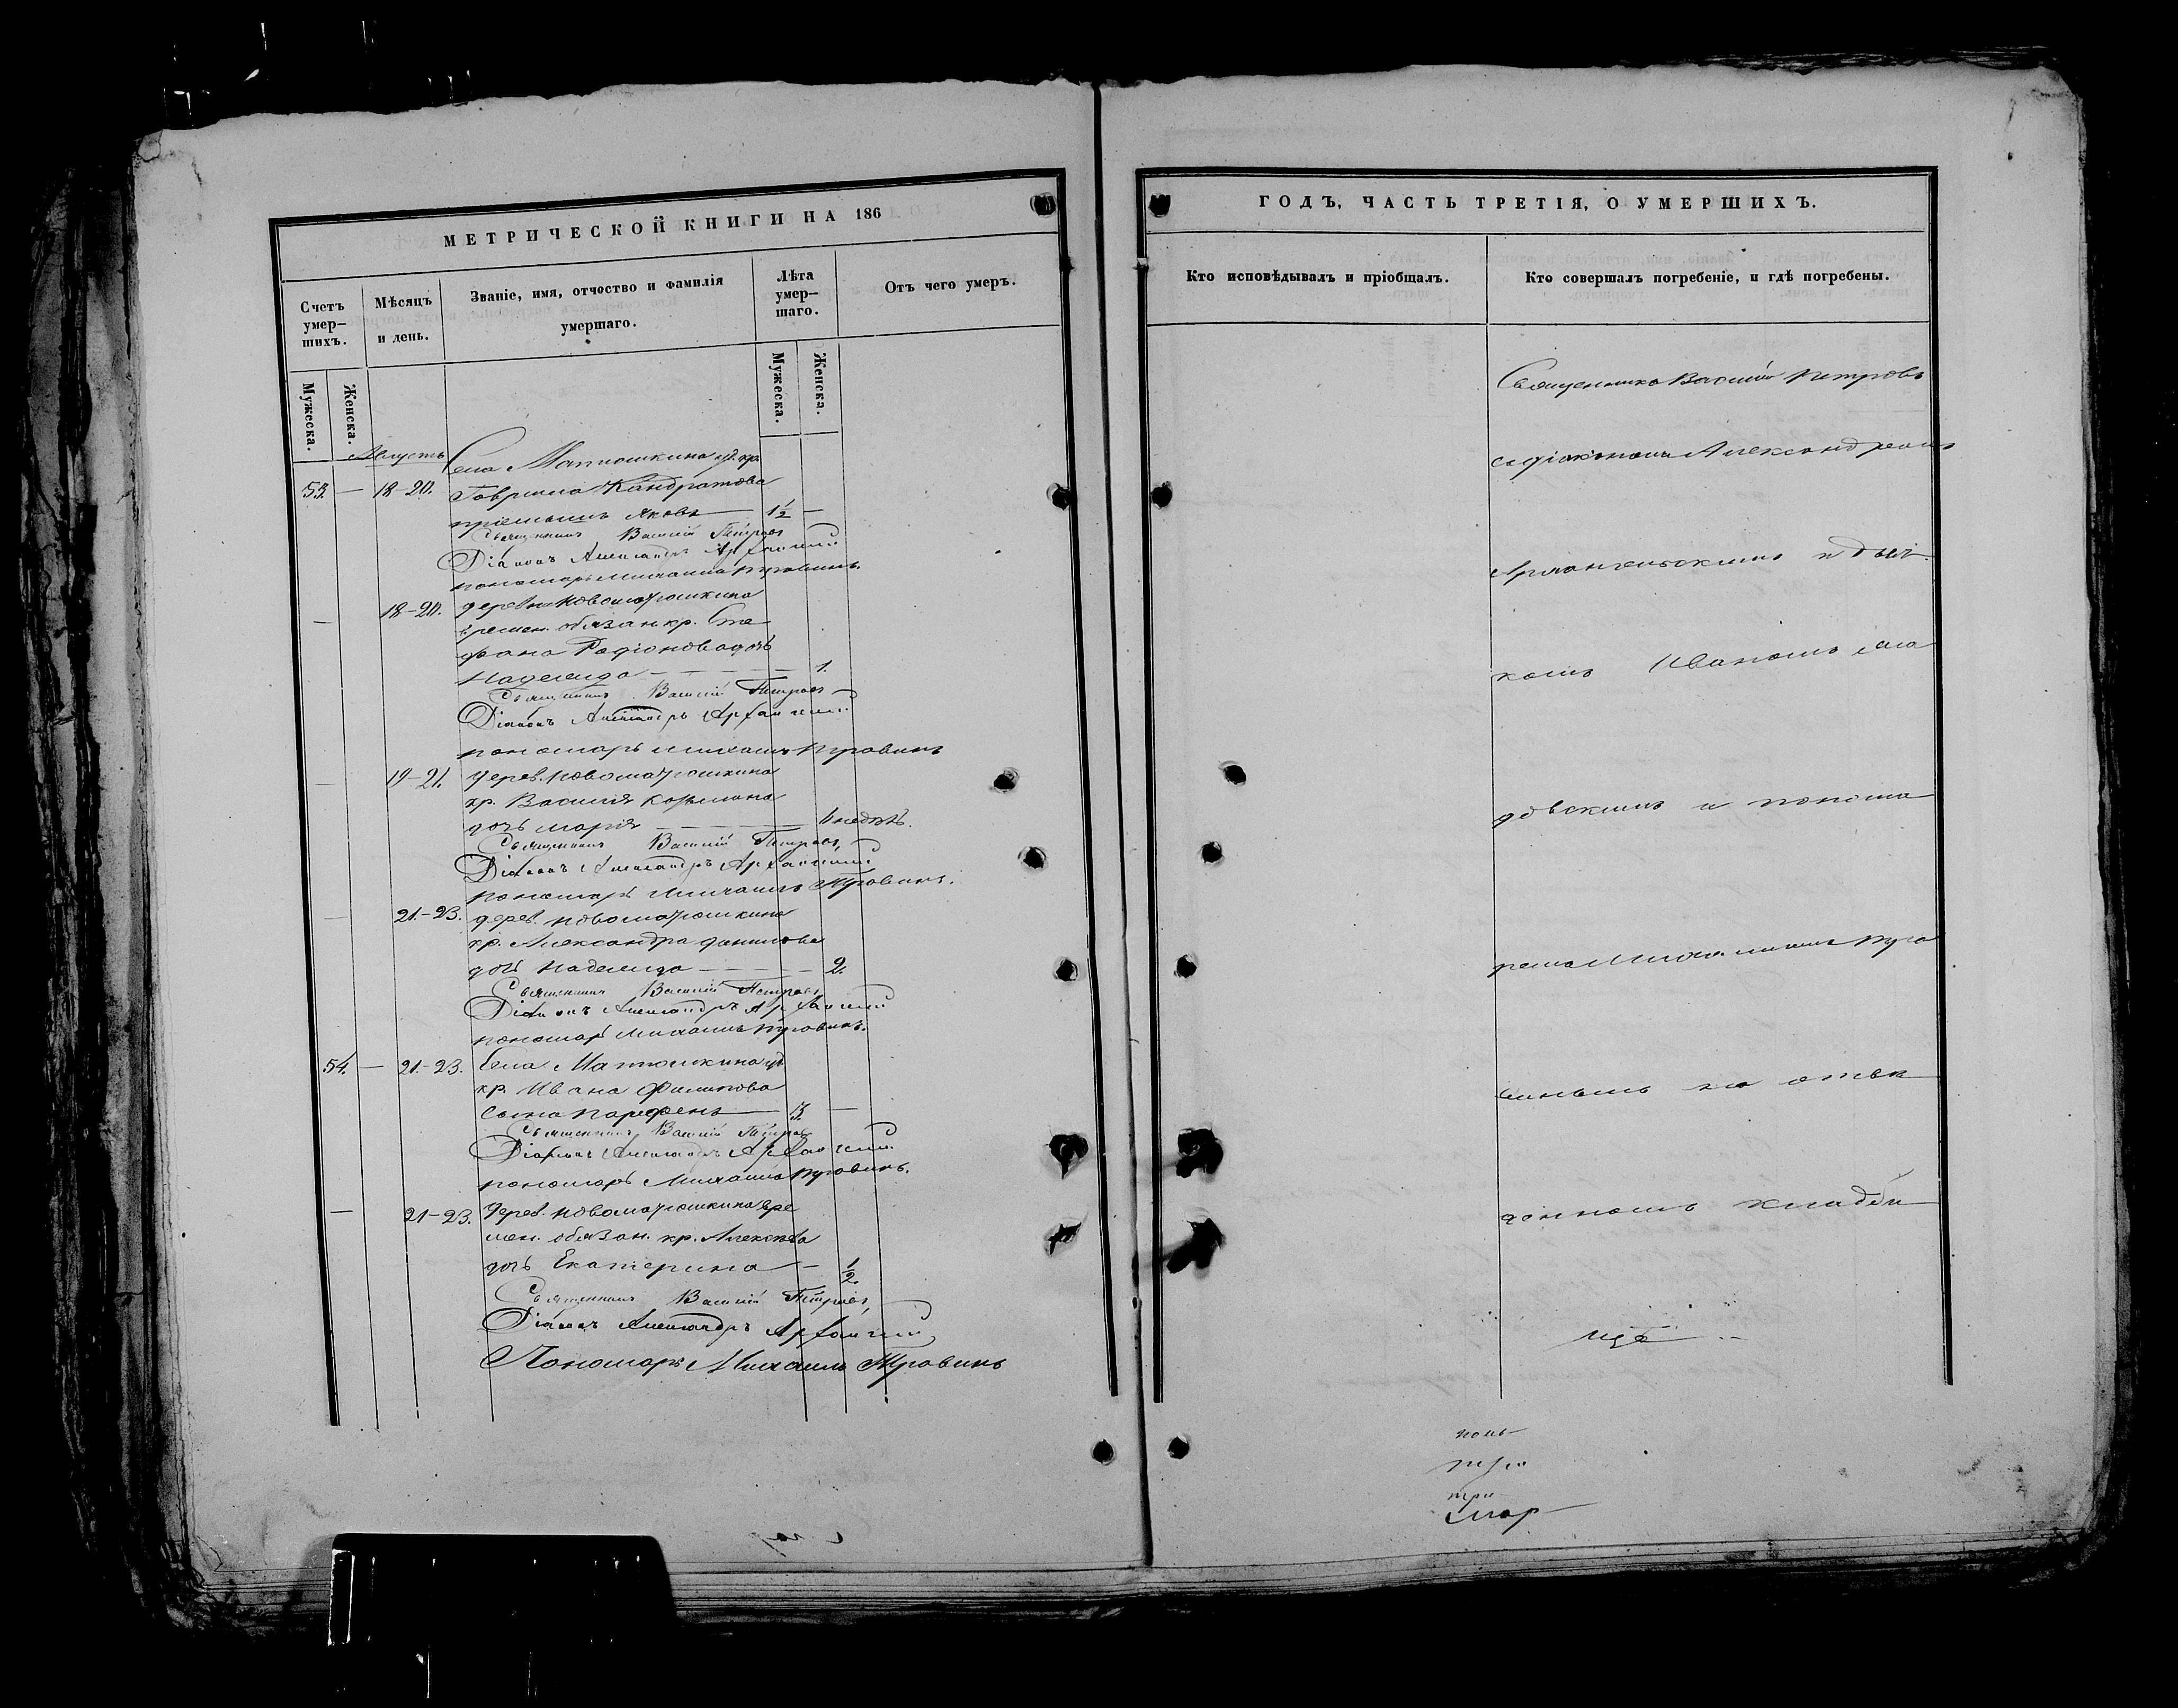 МЕТРИЧЕСКОЙ КНИГИ НА 186
Счетъ умер-шихъ.
Мѣсяцъ и день.
Званіе, имя, отчество и фамилія умершаго.
Лѣта умер-шаго.
Отъ чего умеръ.
Мужеска.
Женска.
Мужеска.
Женска.
Августъ
Села Матюшкина уд. кр.
53. — 18-20. Гаврила Кандратова
пріемышъ Яковъ — 1½ —
Священникъ Василій Петровъ
Діаконъ Александръ Архангельскій
пономарь Михаилъ Травинъ
— 18-20. деревни Новоматюшкина
времен. обязан. кр. Сте
фана Родіонова дочь
Надежда — — — 1.
Священникъ Василій Петровъ
Діаконъ Александръ Архангельскій
пономарь Михаилъ Травинъ
— 19-21. дерев. Новоматюшкина
кр. Василія Козьмина
дочь Марія — — — 6 недѣль.
Священникъ Василій Петровъ,
Діаконъ Александръ Архангельскій
пономарь Михаилъ Травинъ.
— 21-23. дерев. Новоматюшкина
кр. Александра Данилова
дочь Надежда — — — 2.
Священникъ Василій Петровъ
Діаконъ Александръ Архангельскій
пономарь Михаилъ Травинъ.
54. — 21-23. Села Матюшкина уд.
кр. Ивана Филипова
сынъ Парфенъ — 3. —
Священникъ Василій Петровъ
Діаконъ Александръ Архангельскій
пономарь Михаилъ Травинъ.
— 21-23. Дерев. Новоматюшкина вре
мен. обязан. кр. Алексѣева
дочь Екатерина — ½.
Священникъ Василій Петровъ,
Діаконъ Александръ Архангельскій,
Пономарь Михаилъ Травинъ
ГОДЪ, ЧАСТЬ ТРЕТІЯ, О УМЕРШИХЪ.
Кто исповѣдывалъ и пріобщалъ.
Кто совершалъ погребеніе, и гдѣ погребены.
Священникъ Василій Петровъ
съ діакономъ Александромъ
Архангельскимъ и дьяч
комъ Иваномъ
довскимъ и понома
ремъ Михаиломъ Тра
винымъ на отве
денномъ кладби
щѣ